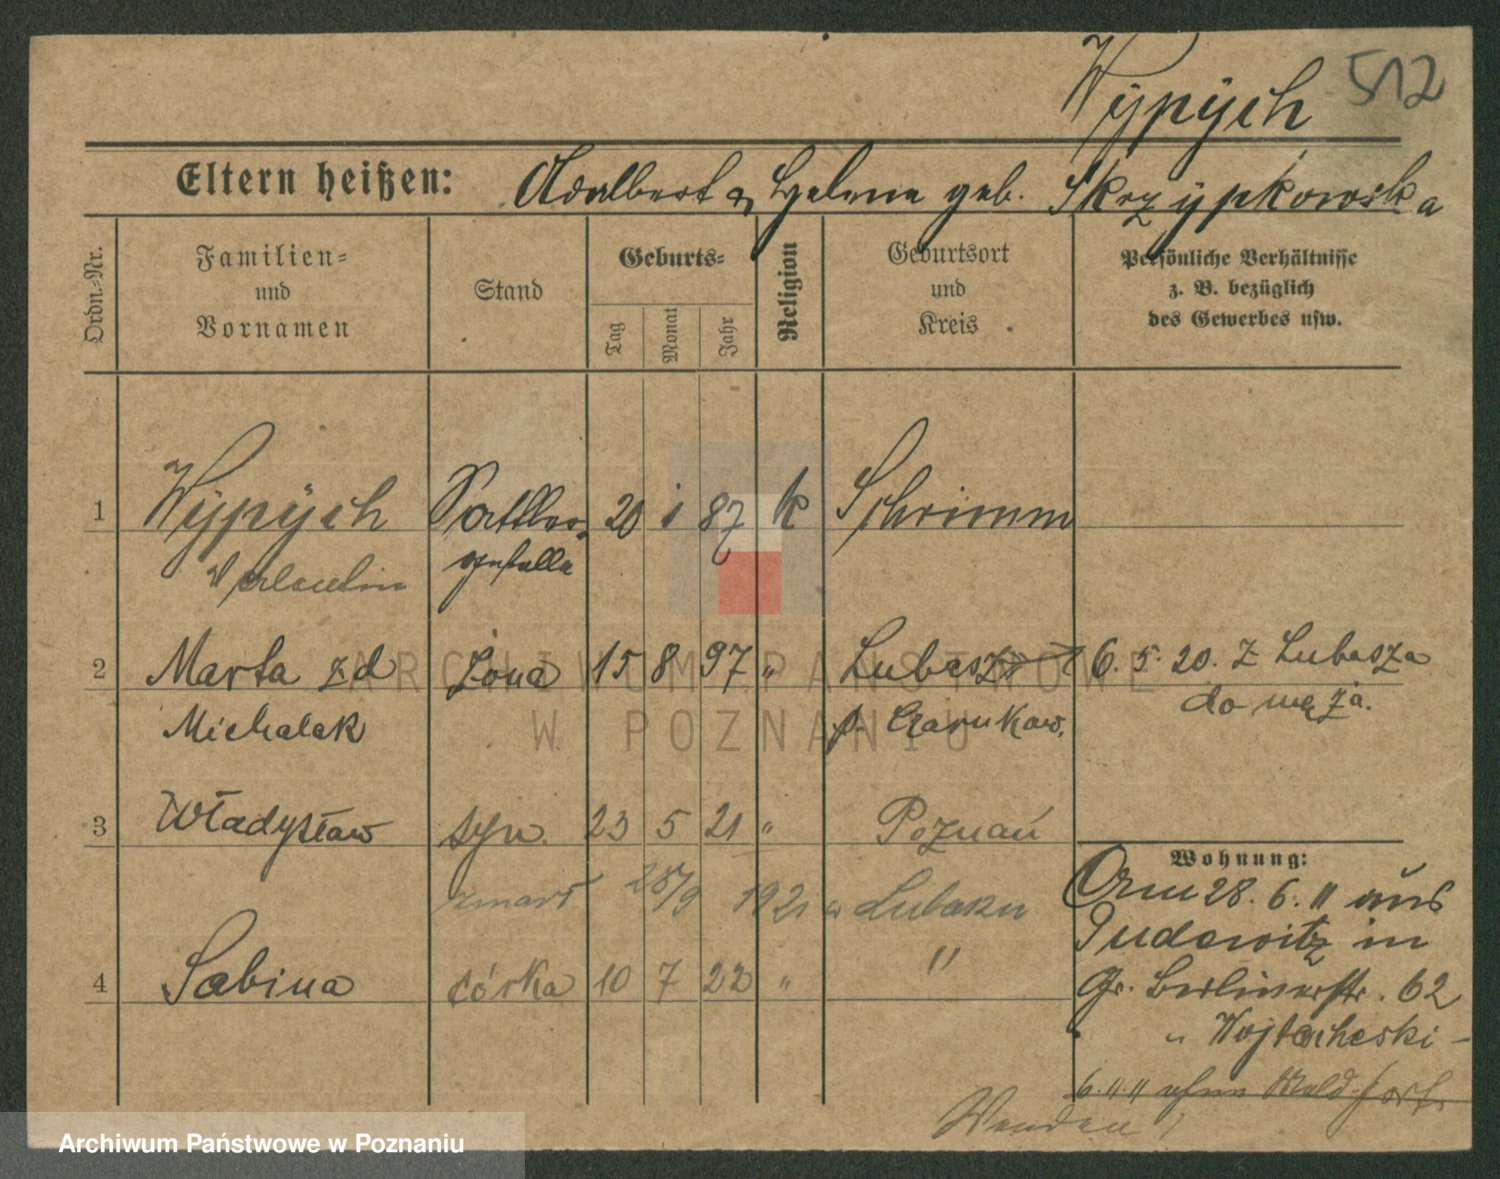 Wÿpÿch 512
Eltern heißen: Adalbert & Helena geb. Skrzypkowska
Ordn.-Nr.
Familien-
und
Vornamen
Stand
Geburts-
Tag
Monat
Jahr
Religion
Geburtsort
und
Kreis
Persönliche Verhältnisse
z. B. bezüglich
des Gewerbes usw.
1 Wÿpÿch Sattler- 20 i 87 k Schrimm
Valentin geselle
2 Marta zd żona 15 8 97 " Lubasz 6. 5. 20. z Lubasza
Michalak p. Czarnkow. do męża.
3 Władysław syn. 23 5 21 " Poznań
zmarł 28/9 1921 w Lubaszu
4 Sabina córka 10 7 22 " "
Wohnung:
28. 6. 11 aus
Pudewitz in
Gr. Berlinerstr. 62
" Wojtacheski
6. 11. 11
Wenden!
ARCHIWUM PAŃSTWOWE
W POZNANIU
Archiwum Państwowe w Poznaniu